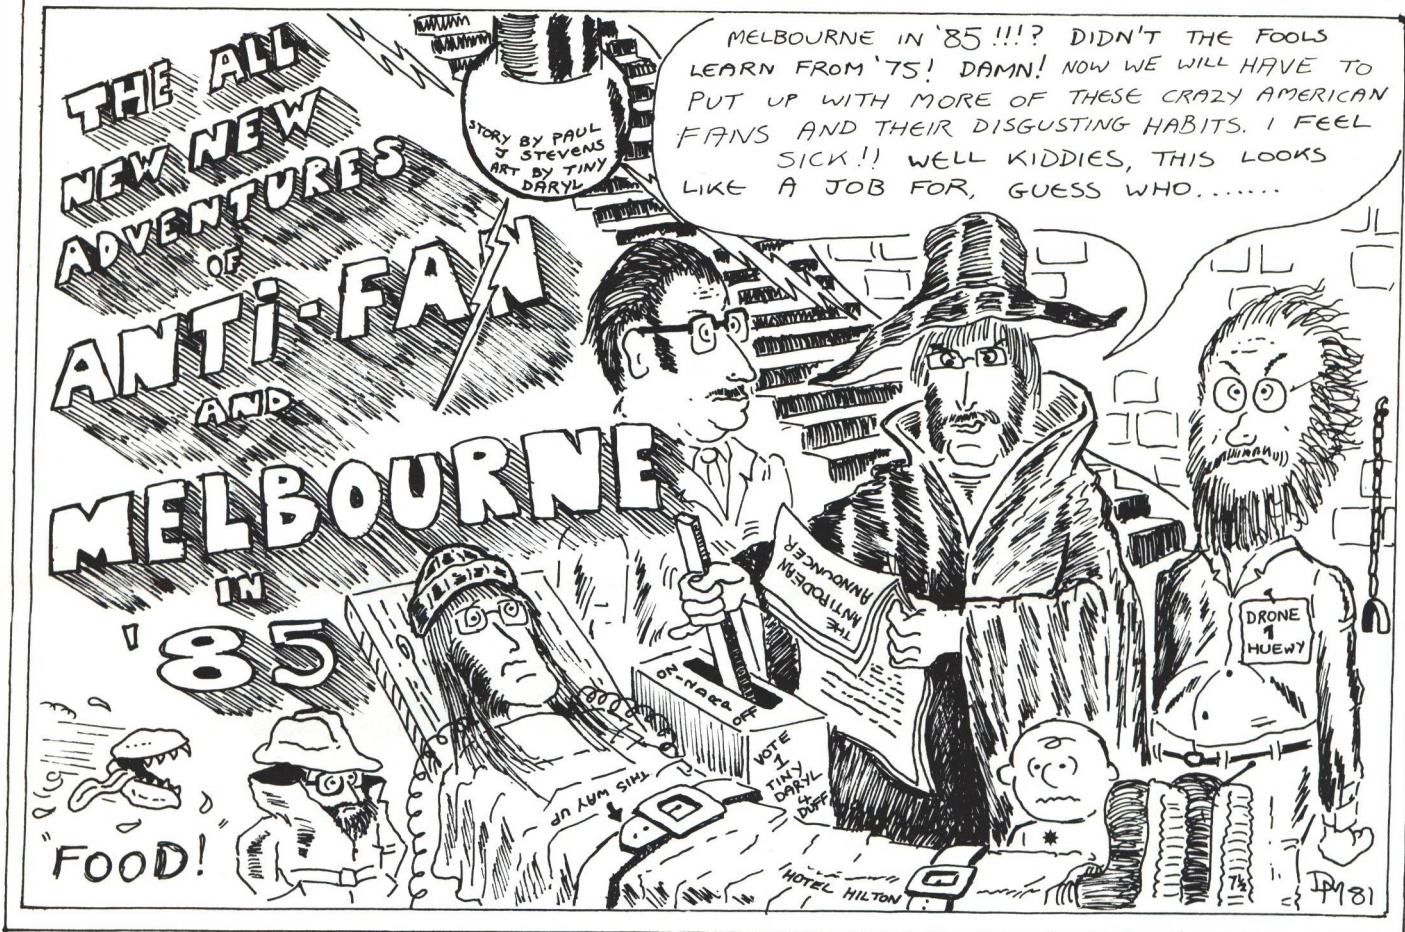 THE ALL
NEW NEW
ADVENTURES
OF
ANTi-FAN
AND
MELBOURNE
IN
'85
STORY BY PAUL
J STEVENS
ART BY TINY
DARYL
MELBOURNE IN '85 !!!? DIDN'T THE FOOLS
LEARN FROM '75! DAMN! NOW WE WILL HAVE TO
PUT UP WITH MORE OF THESE CRAZY AMERICAN
FANS AND THEIR DISGUSTING HABITS. I FEEL
SICK!! WELL KIDDIES, THIS LOOKS
LIKE A JOB FOR, GUESS WHO.......
THE
ANTIPODEAN
ANNOUNCER
DRONE
1
HUEWY
ON
-NARP
OFF
VOTE
1
TINY
DARYL
4
DUFF
THIS WAY UP
HOTEL HILTON
"FOOD!
7½
DM81